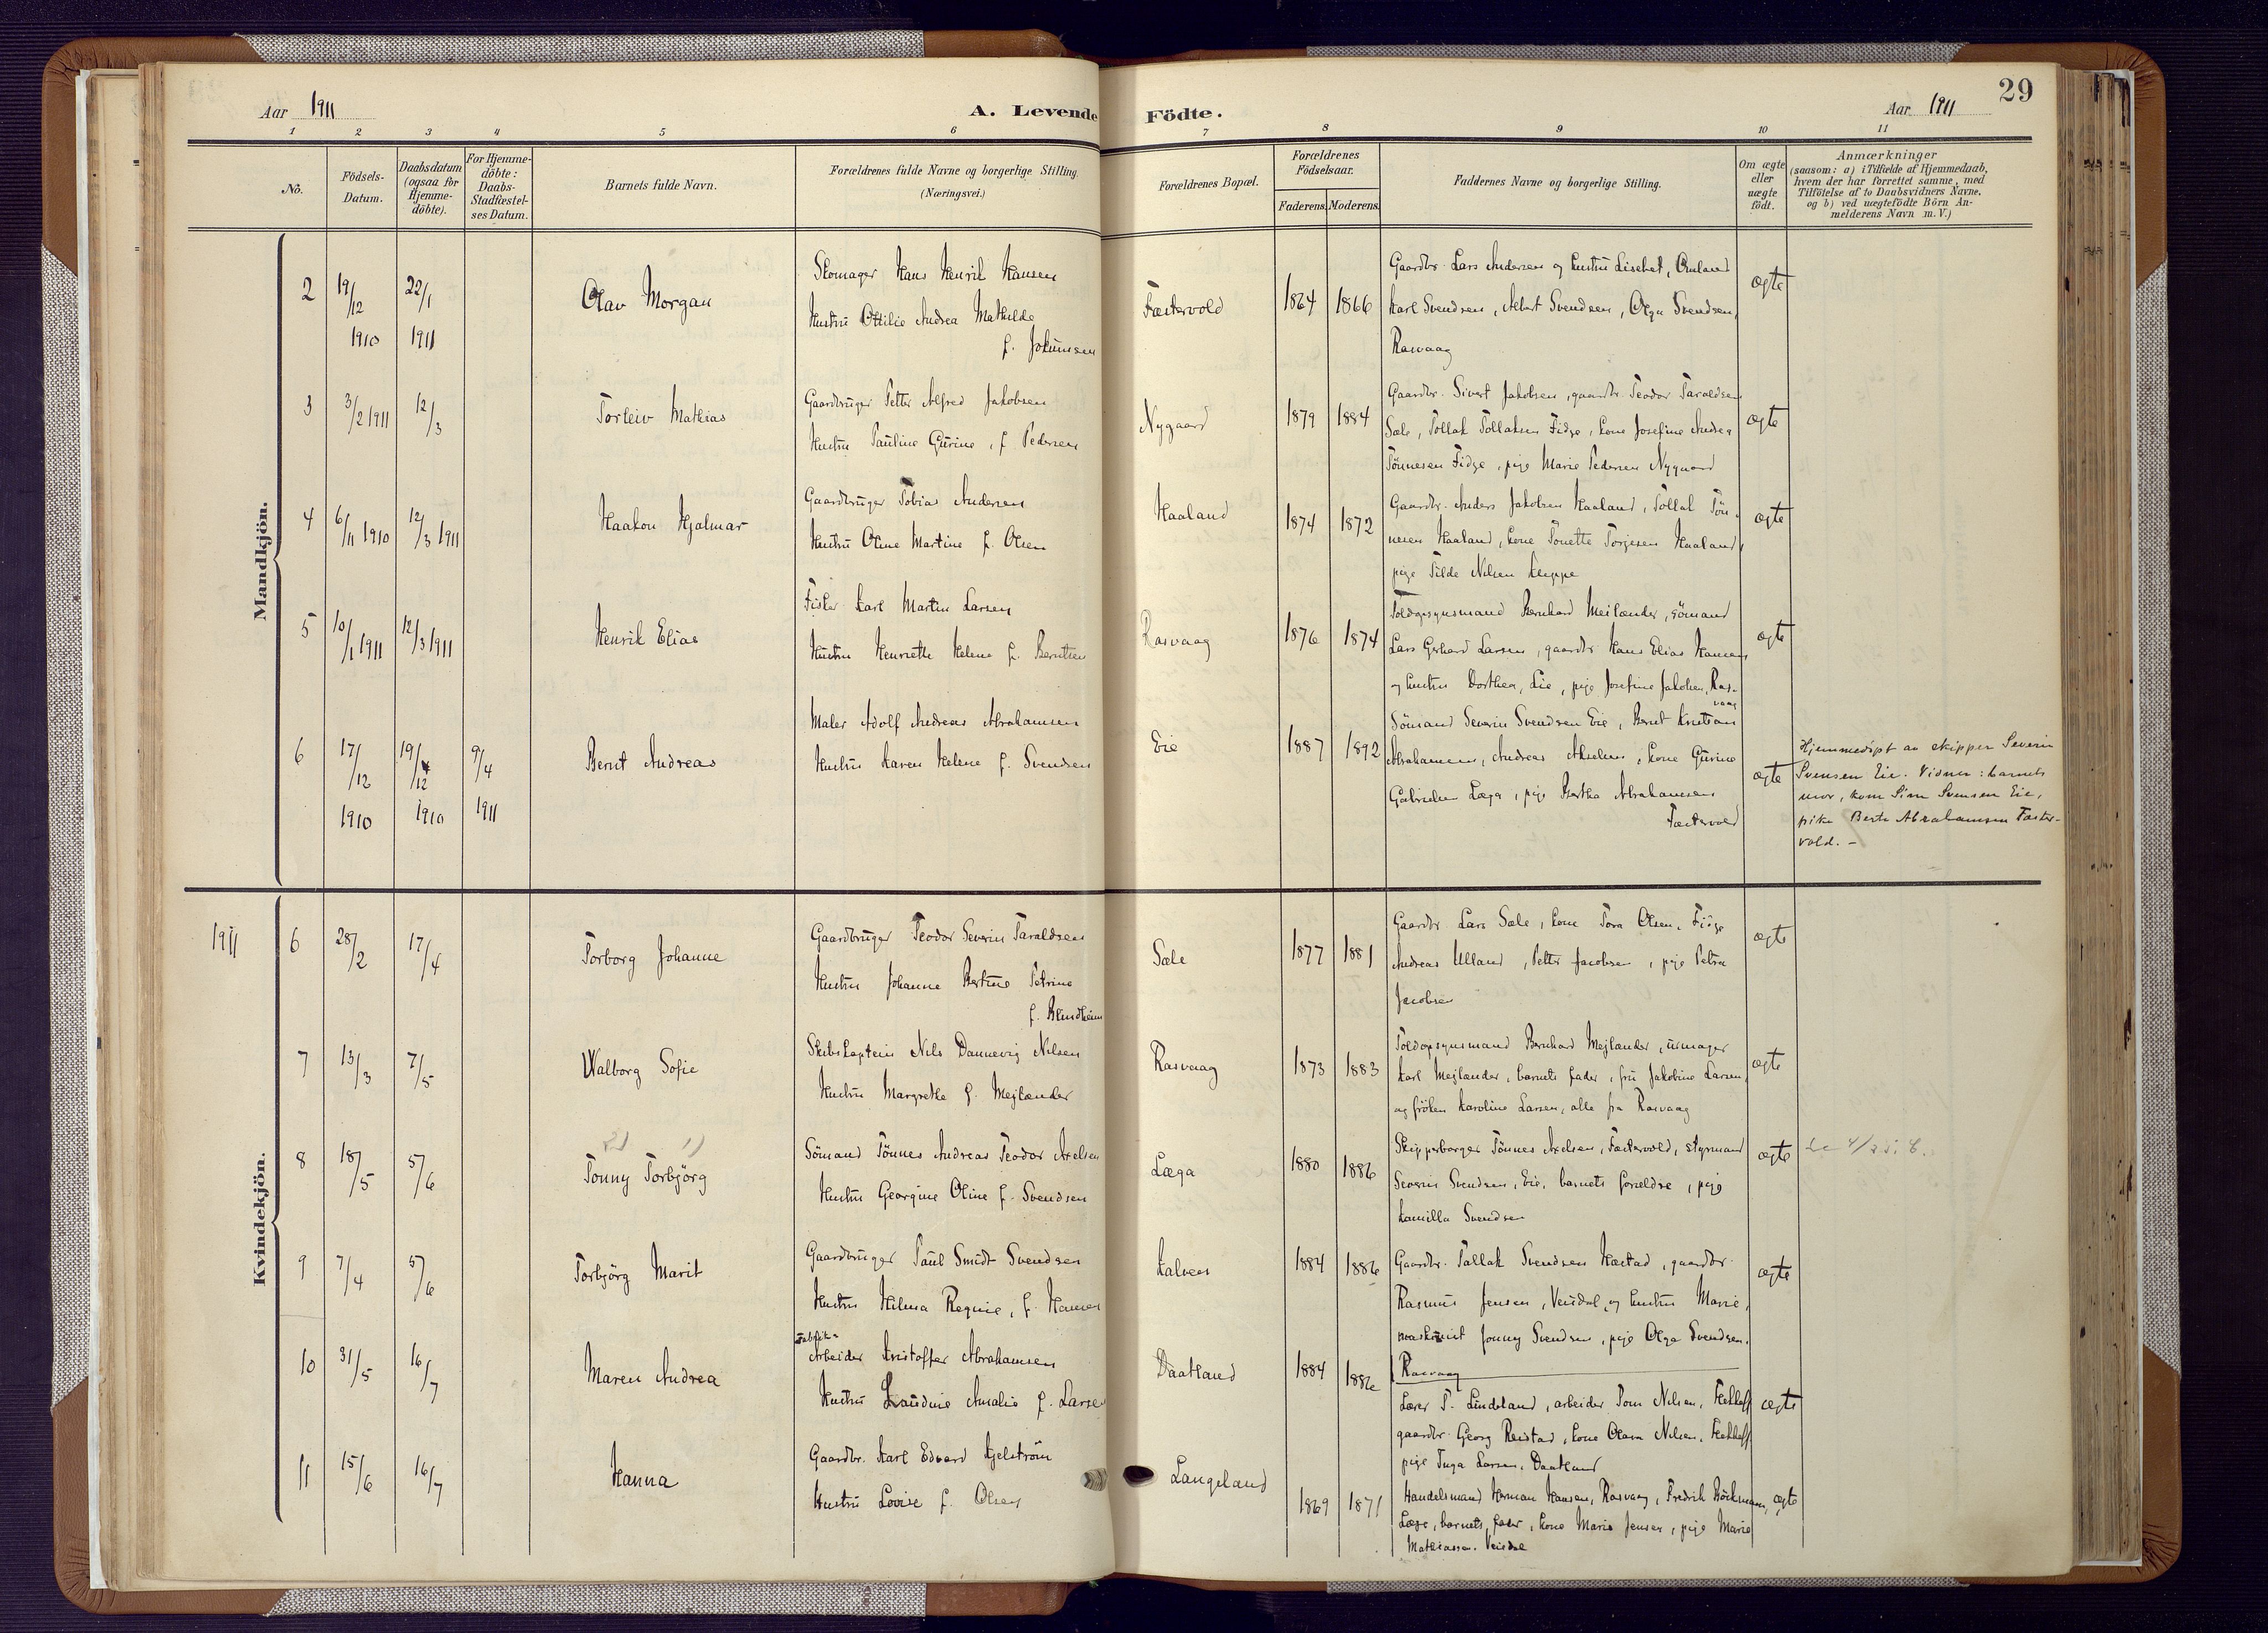 29
Aar 1911
A. Levende Födte.
Aar 1911
1 2 3 4 5 6 7 8 9 10 11
No.
Födsels-
Datum.
Daabsdatum
(ogsaa for
Hjemme-
döbte).
For Hjemme-
döbte:
Daabs-
Stadfæstel-
ses Datum.
Barnets fulde Navn.
Forældrenes fulde Navne og borgerlige Stilling.
(Næringsvei.)
Forældrenes Bopæl.
Forældrenes
Födselsaar.
Faderens. Moderens.
Faddernes Navne og borgerlige Stilling.
Om ægte
eller
uægte
født.
Anmærkninger
(saasom: a) i Tilfælde af Hjemmedaab,
hvem der har forrettet samme, med
Tilföielse af to Daabsvidners Navne,
og b) ved uægtefödte Börn An-
melderens Navn m. V.)
Mandkjön.
2
19/12
1910
22/1
1911
Olav Morgan
Skomager Hans Henrik Hansen
Hustru Ottilie Andrea Mathilde
f. Johansen
Fæstervold
1864 1866
Gaardbr. Lars Andersen og hustru Lisebet, Omland
Karl Svendsen, Albert Svendsen, Olga Svendsen,
Rasvaag
ægte
3
3/2 1911
12/3
Torleiv Mathias
Gaardbruger Petter Alfred Jakobsen
Hustru Pauline Gurine, f. Pedersen
Nygaard
1879 1884
Gaardbr. Sivert Jakobsen, gaardbr. Teodor Taraldsen
Sæle, Tollak Tollaksen Fidge, kone Josefine Andrea
Tönnesen Fidge, pige Marie Pedersen Nygaard
ægte
4
6/11 1910
12/3 1911
Haakon Hjalmar
Gaardbruger Tobias Andersen
Hustru Oline Martine f. Olsen
Haaland
1874 1872
Gaardbr. Anders Jakobsen Haaland, Tollak Tön-
nesen Haaland, kone Tonette Torjesen Haaland,
pige Tilde Nilsen Kleppe
ægte
5
10/1 1911
12/3 1911
Henrik Elias
Fisker Karl Martin Larsen
Hustru Henriette Helene f. Berntsen
Rasvaag
1876 1874
Toldopsynsmand Bernhard Meilænder, sömand
Lars Gerhard Larsen, gaardbr. Hans Elias Hansen
og hustru Dorthea, Lie, pige Josefine Jakobsen, Ras-
vaag
ægte
6
17/12
1910
19/12
1910
9/4
1911
Bernt Andreas
Maler Adolf Andreas Abrahamsen
Hustru Karen Helene f. Svendsen
Eie
1887 1892
Sömand Severin Svendsen Eie, Bernt Kristian
Abrahamsen, Andreas Akselsen, kone Gurine
Gabrielsen Læga, pige Bertha Abrahamsen
Fæstervold
ægte
Hjemmedöpt av skipper Severin
Svensen Eie. Vidner: barnets
mor, kone Sina Svensen Eie,
pike Berta Abrahamsen Fæster-
vold. –
Kvindekjön.
1911
6
28/2
17/4
Torborg Johanne
Gaardbruger Teodor Severin Taraldsen
Hustru Johanne Bertine Petrine
f. Blindheim
Sæle
1877 1881
Gaardbr. Lars Sæle, kone Tora Olsen, Fidge
Andreas Ulland, Petter Jacobsen, pige Petra
Jacobsen
ægte
7
13/3
7/5
Walborg Sofie
Skibskaptein Nils Dannevig Nilsen
Hustru Margrethe f. Mejlænder
Rasvaag
1873 1883
Toldopsynsmand Bernhard Mejlænder, urmager
Karl Mejlænder, barnets fader, fru Jakobine Larsen,
og fröken Karoline Larsen, alle fra Rasvaag
ægte
8
18/5
5/6
2) 1)
Tonny Torbjörg
Sömand Tönnes Andreas Teodor Axelsen
Hustru Georgine Oline f. Svendsen
Læga
1880 1886
Skipperborger Tönnes Axelsen, Fæstervold, styrmand
Severin Svendsen, Eie, barnets forældre, pige
Kamilla Svendsen
ægte
9
7/4
5/6
Torbjörg Marit
Gaardbruger Paul Smidt Svendsen
Hustru Hilma Regine, f. Hansen
Kalven
1884 1886
Gaardbr. Tallak Svendsen Hæstad, gaardbr.
Rasmus Jensen, Veisdal, og hustru Marie,
maskinist Jonny Svendsen, pige Olga Svendsen.
Rasvaag
ægte
10
31/5
16/7
Maren Andrea
Fabrik-
Arbeider Kristoffer Abrahamsen
Hustru Laudine Amalie f. Larsen
Daatland
1884 1886
Lærer T. Lindeland, arbeider Tom Nilsen, Flekkefj
gaardbr. Georg Reistad, kone Olava Nilsen, Flekkefj
pige Inga Larsen, Daatland
ægte
11
15/6
16/7
Hanna
Gaardbr. Karl Edvard Kjelström
Hustru Lovise f. Olsen
Langeland
1869 1871
Handelsmand Herman Hansen, Rasvaag, Fredrik Böckman,
Læge, barnets fader, kone Marie Jensen, pige Marie
Mathiassen, Veisdal
ægte